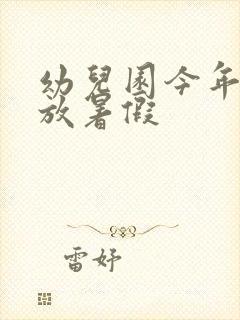 幼兒園今年
放暑假
雷妤